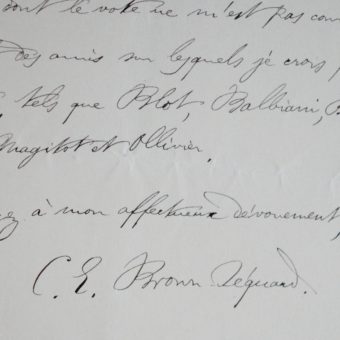 dont le vote ne m'est pas con
des amis sur lesquels je crois p
tels que Blot, Balbiani, B
Magitot et Ollivier.
ez à mon affectueux dévouement,
C. E. Brown-Séquard.